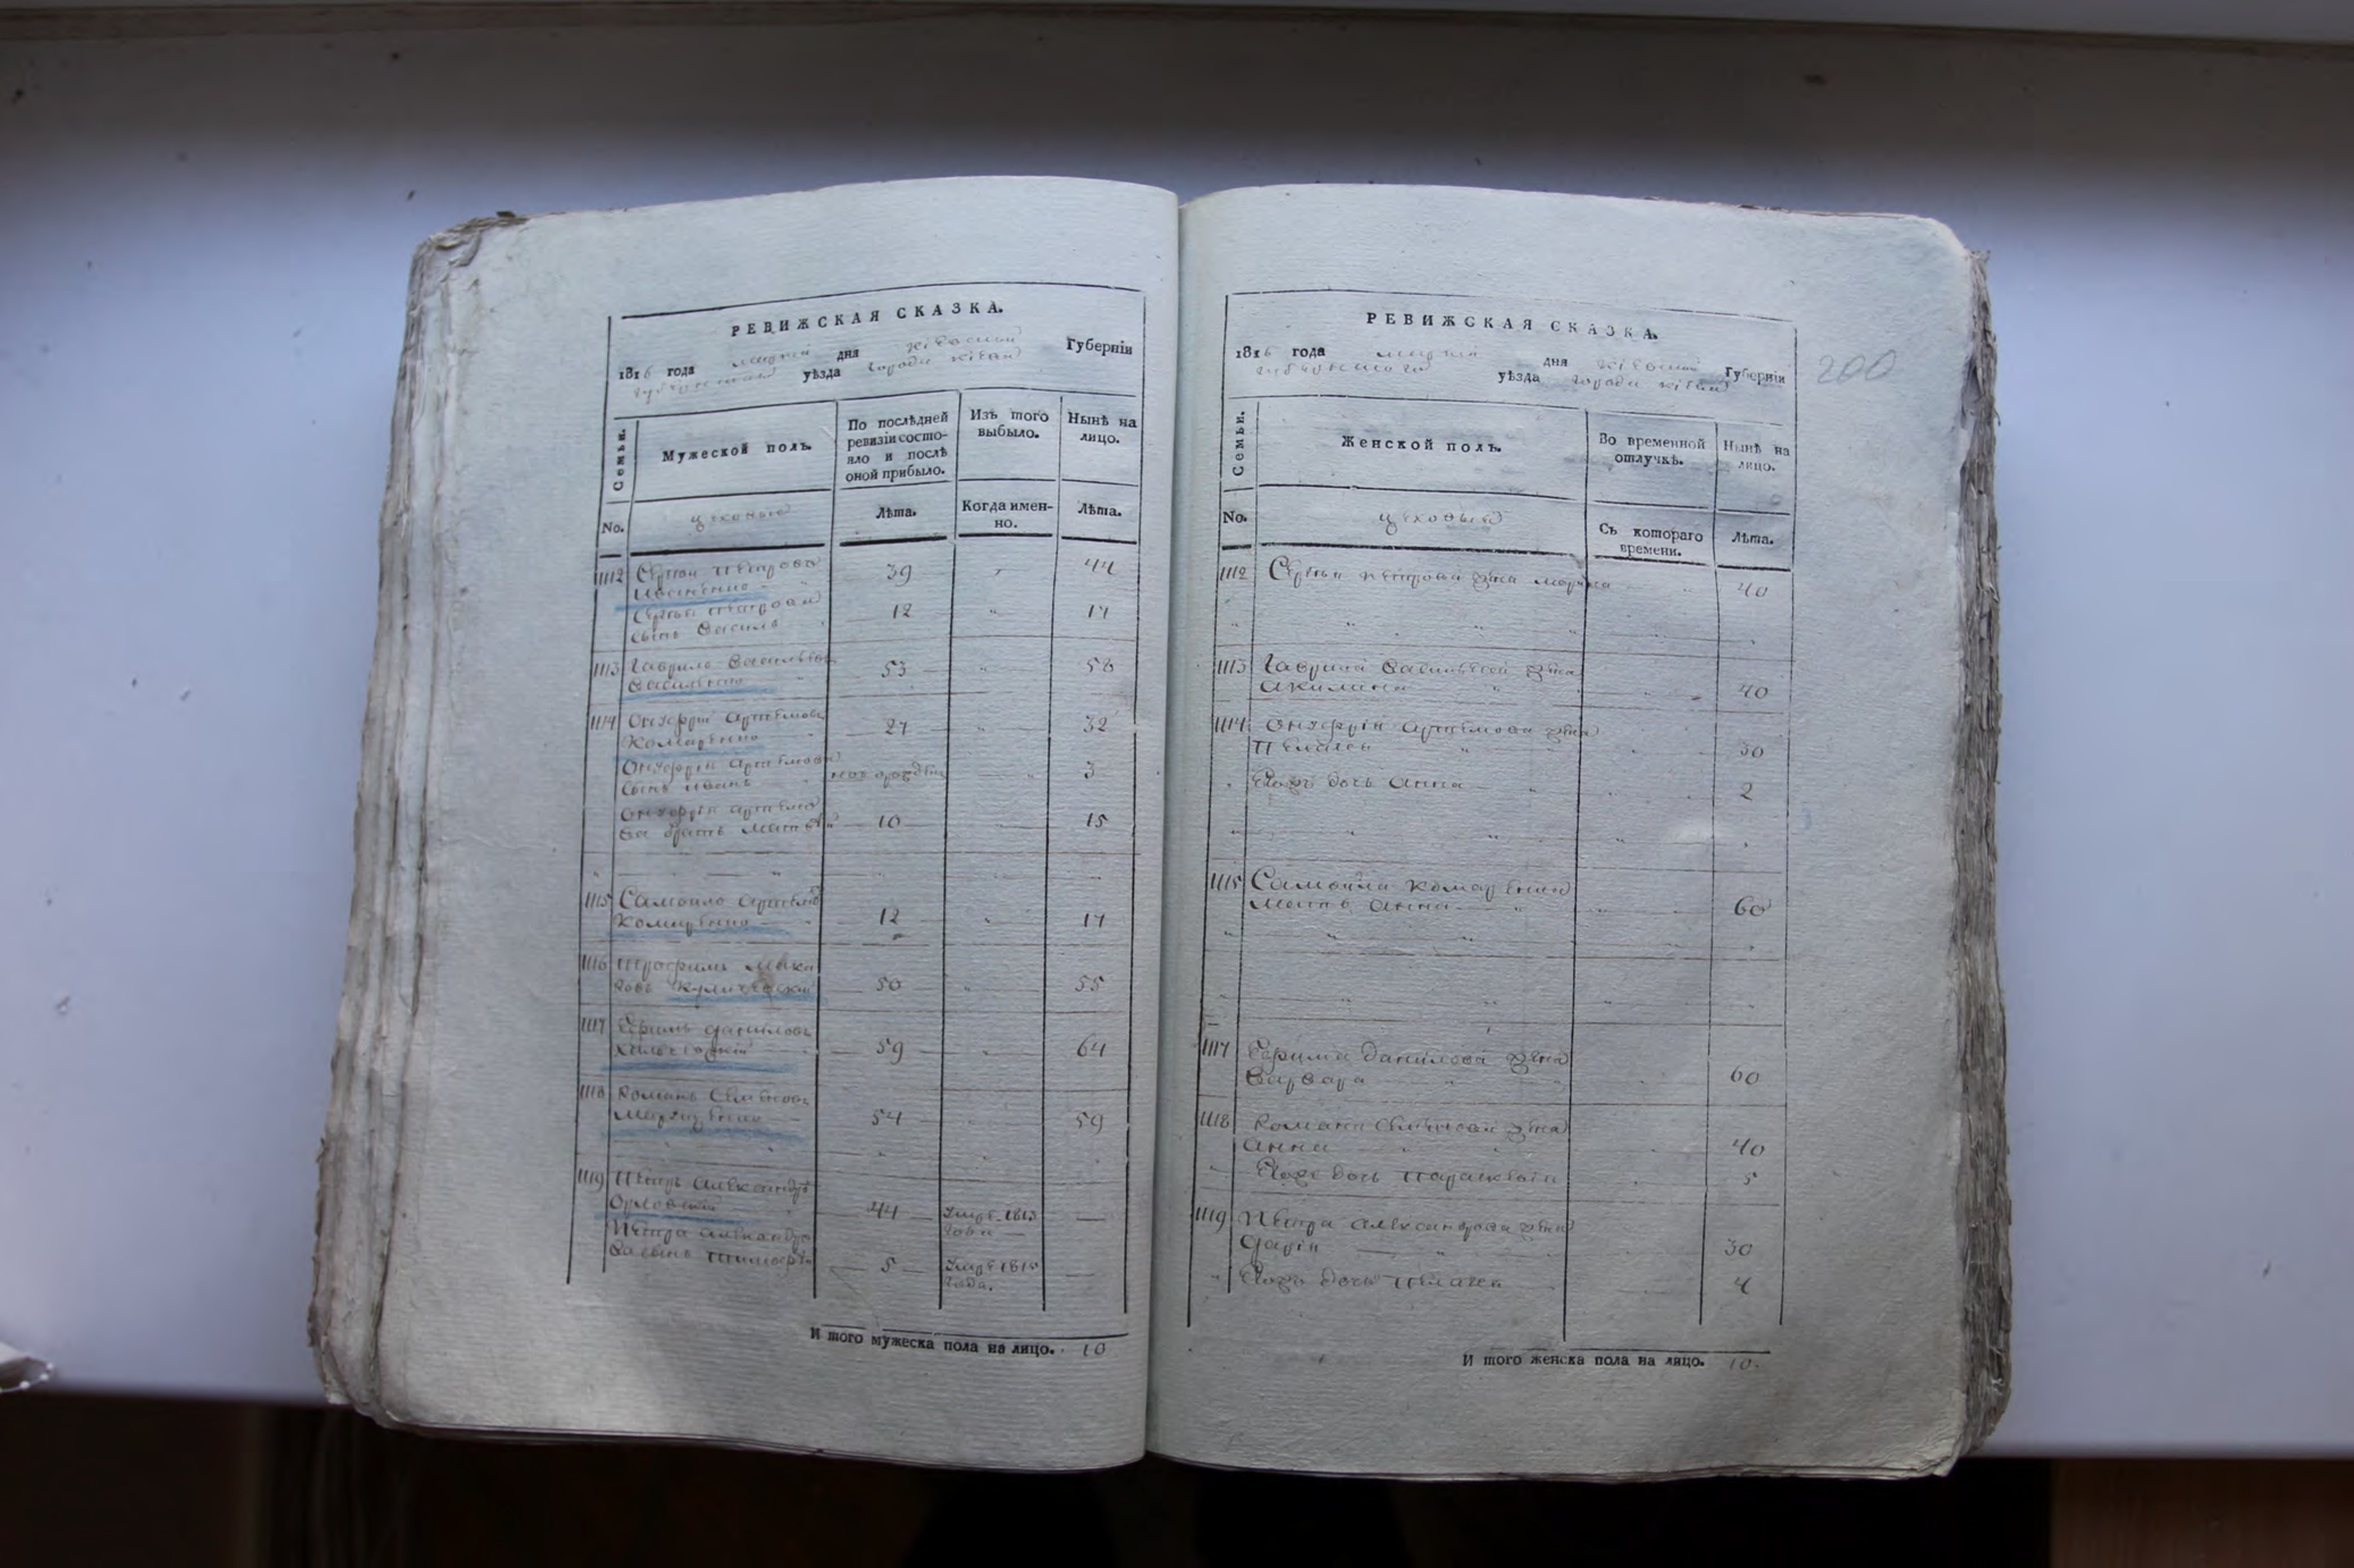 РЕВИЖСКАЯ СКАЗКА.
1816 года маія дня Кіевской Губерніи
уѣзда города Кіева
Семьи. Мужеской полъ. По послѣдней ревизіи состояло и послѣ оной прибыло. Изъ того выбыло. Нынѣ на лицо.
No. цеховые Лѣта. Когда именно. Лѣта.
1112 Сергѣй Петровъ 39 44
Иваненко
Сергѣя Петрова 12 17
сынъ Василь
1113 Гаврило Васильевъ 53 58
Василенко
1114 Онуфрій Артемовъ 27 32
Комаренко
Онуфрія Артемова новорожденъ 3
сынъ Иванъ
Онуфрія Артемо
ва братъ Матвѣй 10 15
1115 Самойло Артемовъ
Комаренко 12 17
1116 Трофимъ Мака
ровъ 50 55
1117 Ефимъ Даниловъ
59 64
1118 Романъ Семеновъ
54 59
1119 Петръ Александровъ
Орловскій 44 Умре 1813 года
Петра Александро
ва сынъ Тимофей 5 Умре 1815 года.
И того мужеска пола на лицо. 10
РЕВИЖСКАЯ СКАЗКА.
1816 года маія дня Кіевской Губерніи
уѣзда города Кіева
200
Семьи. Женской полъ. Во временной отлучкѣ. Нынѣ на лицо.
No. цеховые Съ котораго времени. Лѣта.
1112 Сергѣя Петрова жена Марина 40
1113 Гаврила Васильева жена
Акилина 40
1114 Онуфрія Артемова жена
Пелагея 30
Ихъ дочь Анна 2
1115 Самойла Комаренка
мать Анна 60
1117 Ефима Данилова жена
Варвара 60
1118 Романа Семенова жена
Анна 40
Ихъ дочь Параскевія 5
1119 Петра Александрова жена
Дарія 30
Ихъ дочь Пелагея 4
И того женска пола на лицо. 10.